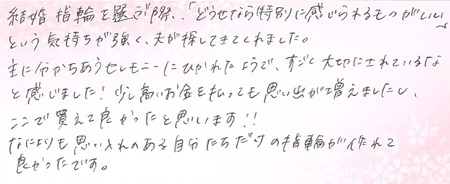 結婚指輪を選ぶ際、「どうせなら特別に感じられるものがいい」
という気持ちが強く、夫が探してきてくれました。
主に分かちあうセレモニーにひかれたようで、すごく大切にされているな
と感じました！少し高いお金を払っても思い出が増えましたし、
ここで買えて良かったと思います！！
なによりも思い入れのある自分たちだけの指輪が作れて
良かったです。